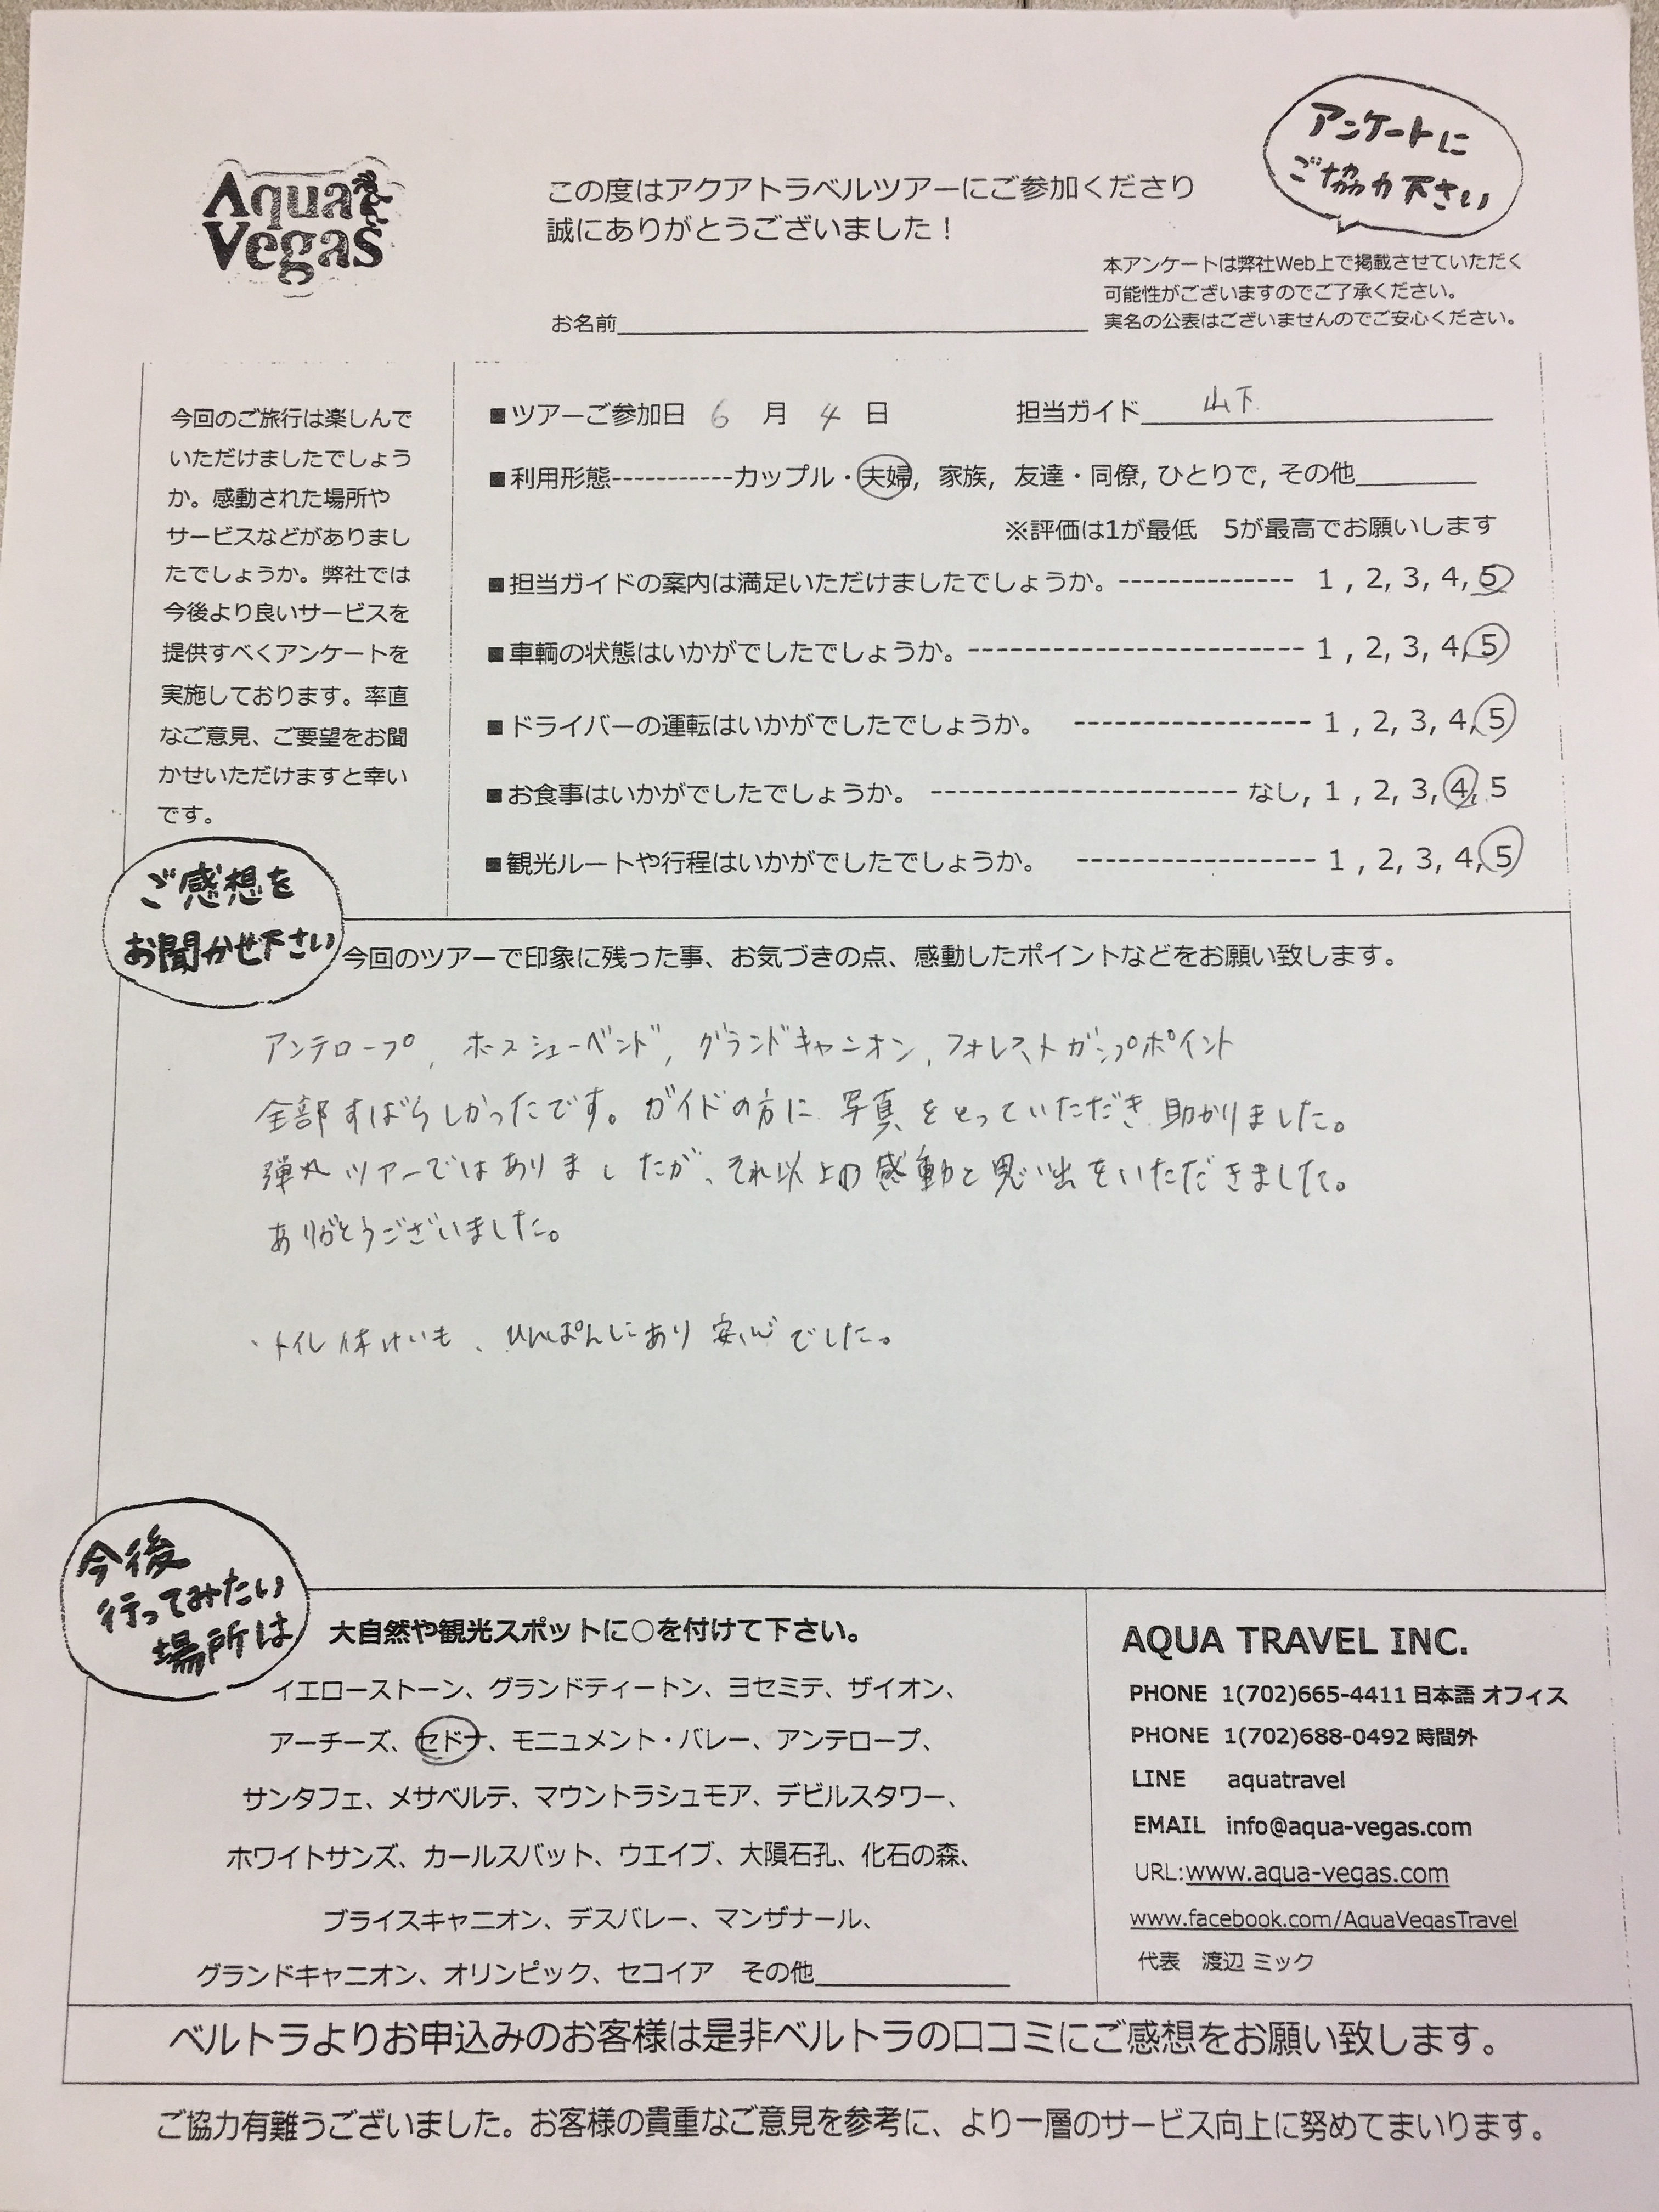 Aqua
Vegas
この度はアクアトラベルツアーにご参加くださり
誠にありがとうございました！
アンケートに
ご協力下さい
本アンケートは弊社Web上で掲載させていただく
可能性がございますのでご了承ください。
実名の公表はございませんのでご安心ください。
お名前
今回のご旅行は楽しんで
いただけましたでしょう
か。感動された場所や
サービスなどがありまし
たでしょうか。弊社では
今後より良いサービスを
提供すべくアンケートを
実施しております。率直
なご意見、ご要望をお聞
かせいただけますと幸い
です。
■ツアーご参加日 6 月 4 日 担当ガイド 山下
■利用形態-----------カップル・夫婦, 家族, 友達・同僚, ひとりで, その他
※評価は1が最低 5が最高でお願いします
■担当ガイドの案内は満足いただけましたでしょうか。-------------- 1 , 2, 3, 4, 5
■車輌の状態はいかがでしたでしょうか。------------------------ 1 , 2, 3, 4, 5
■ドライバーの運転はいかがでしたでしょうか。 ----------------- 1 , 2, 3, 4, 5
■お食事はいかがでしたでしょうか。 ---------------------- なし, 1 , 2, 3, 4, 5
■観光ルートや行程はいかがでしたでしょうか。 ----------------- 1 , 2, 3, 4, 5
ご感想を
お聞かせ下さい
今回のツアーで印象に残った事、お気づきの点、感動したポイントなどをお願い致します。
アンテロープ, ホースシューベンド, グランドキャニオン, フォレストガンプポイント
全部すばらしかったです。ガイドの方に写真をとっていただき助かりました。
弾丸ツアーではありましたが、それ以上の感動と思い出をいただきました。
ありがとうございました。
・トイレ休けいも、ひんぱんにあり安心でした。
今後
行ってみたい
場所は
大自然や観光スポットに○を付けて下さい。
イエローストーン、グランドティートン、ヨセミテ、ザイオン、
アーチーズ、セドナ、モニュメント・バレー、アンテロープ、
サンタフェ、メサベルテ、マウントラシュモア、デビルスタワー、
ホワイトサンズ、カールスバット、ウエイブ、大隕石孔、化石の森、
ブライスキャニオン、デスバレー、マンザナール、
グランドキャニオン、オリンピック、セコイア その他
AQUA TRAVEL INC.
PHONE 1(702)665-4411 日本語 オフィス
PHONE 1(702)688-0492 時間外
LINE aquatravel
EMAIL info@aqua-vegas.com
URL:www.aqua-vegas.com
www.facebook.com/AquaVegasTravel
代表 渡辺 ミック
ベルトラよりお申込みのお客様は是非ベルトラの口コミにご感想をお願い致します。
ご協力有難うございました。お客様の貴重なご意見を参考に、より一層のサービス向上に努めてまいります。